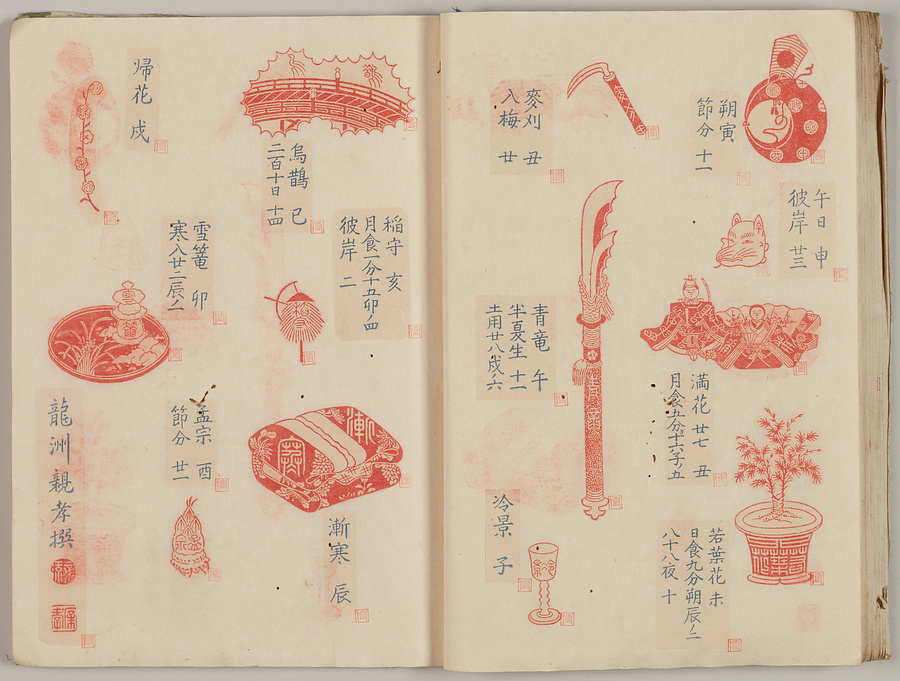 朔寅
節分 十一
午日 申
彼岸 廿三
満花 廿七 丑
月食五分十六子ノ五
若葉花 未
日食九分朔辰ノ二
八十八夜 十
麥刈 丑
入梅 廿
青竜 午
半夏生 十一
土用廿八戌ノ六
冷景 子
烏鵲 巳
二百十日 十四
稲守 亥
月食一分十五卯ノ四
彼岸 二
漸寒 辰
帰花 戌
雪篭 卯
寒入廿二辰ノ二
孟宗 酉
節分 廿一
龍洲親孝撰